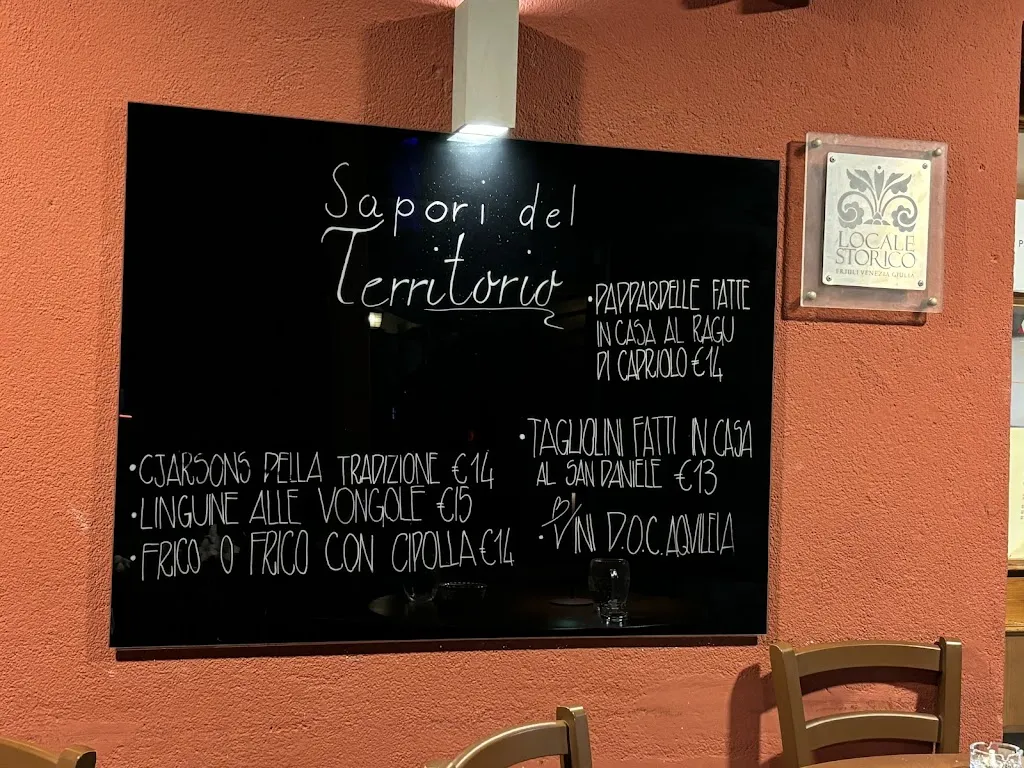 Sapori del
Territorio
• PAPPARDELLE FATTE
IN CASA AL RAGU
DI CAPRIOLO €14
• TAGLIOLINI FATTI IN CASA
AL SAN DANIELE €13
• VINI D.O.C. AQUILEIA
• CJARSONS DELLA TRADIZIONE €14
• LINGUINE ALLE VONGOLE €15
• FRICO O FRICO CON CIPOLLA €14
LOCALE
STORICO
FRIULI VENEZIA GIULIA